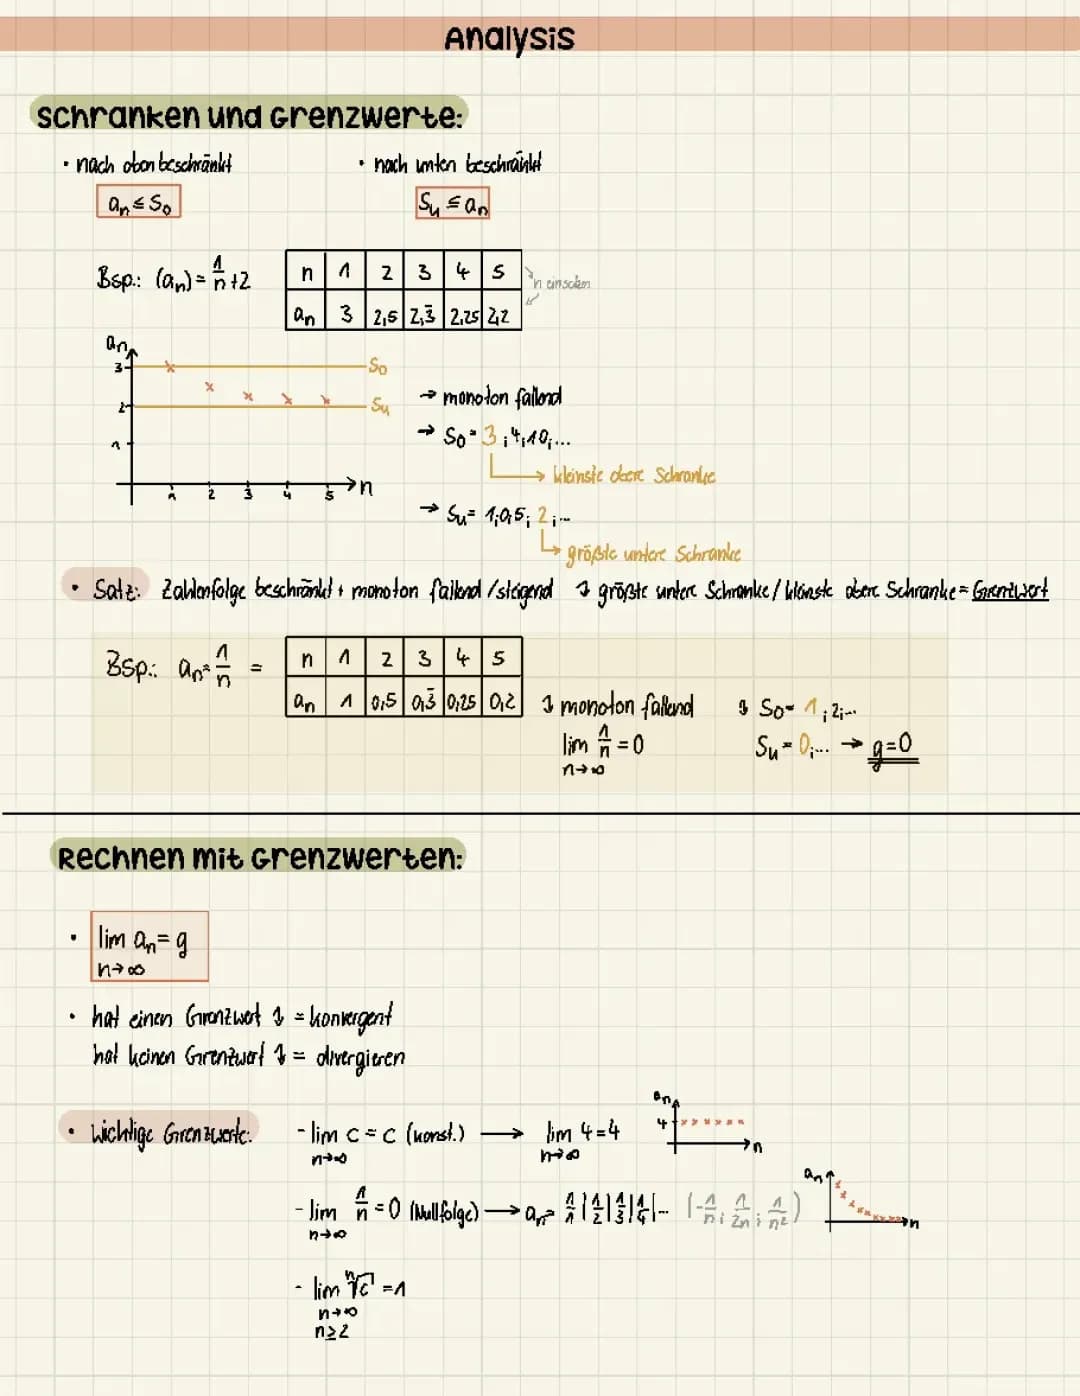 Analysis
Schranken und Grenzwerte:
• nach oben beschränkt • nach unten beschränkt
aₙ ≤ S₀ Sᵤ ≤ aₙ
Bsp.: (aₙ) = 1/n + 2
n 1 2 3 4 5
aₙ 3 2,5 2,3̅ 2,25 2,2
n einsetzen
aₙ
3 S₀
2 Sᵤ
1
1 2 3 4 5 n
→ monoton fallend
→ S₀ = 3 ; 4; 10; ...
→ kleinste obere Schranke
→ Sᵤ = 1; 0,5; 2 ; ...
→ größte untere Schranke
• Satz: Zahlenfolge beschränkt + monoton fallend / steigend ↴ größte untere Schranke / kleinste obere Schranke = Grenzwert
Bsp.: aₙ = 1/n =
n 1 2 3 4 5
aₙ 1 0,5 0,3̅ 0,25 0,2
↴ monoton fallend ↴ S₀ = 1 ; 2; ...
lim 1/n = 0 Sᵤ = 0; ... → g = 0
n→∞
Rechnen mit Grenzwerten:
• lim aₙ = g
n→∞
• hat einen Grenzwert ↴ = konvergent
hat keinen Grenzwert ↴ = divergieren
• Wichtige Grenzwerte: - lim c = c (konst.) → lim 4 = 4
n→∞ n→∞
aₙ
4
n
- lim 1/n = 0 (Nullfolge) → aₙ = 1/1 | 1/2 | 1/3 | 1/4 | ... (-1/n ; 1/2n ; 1/n²)
n→∞
aₙ
n
- lim ⁿ√c = 1
n→∞
n≥2